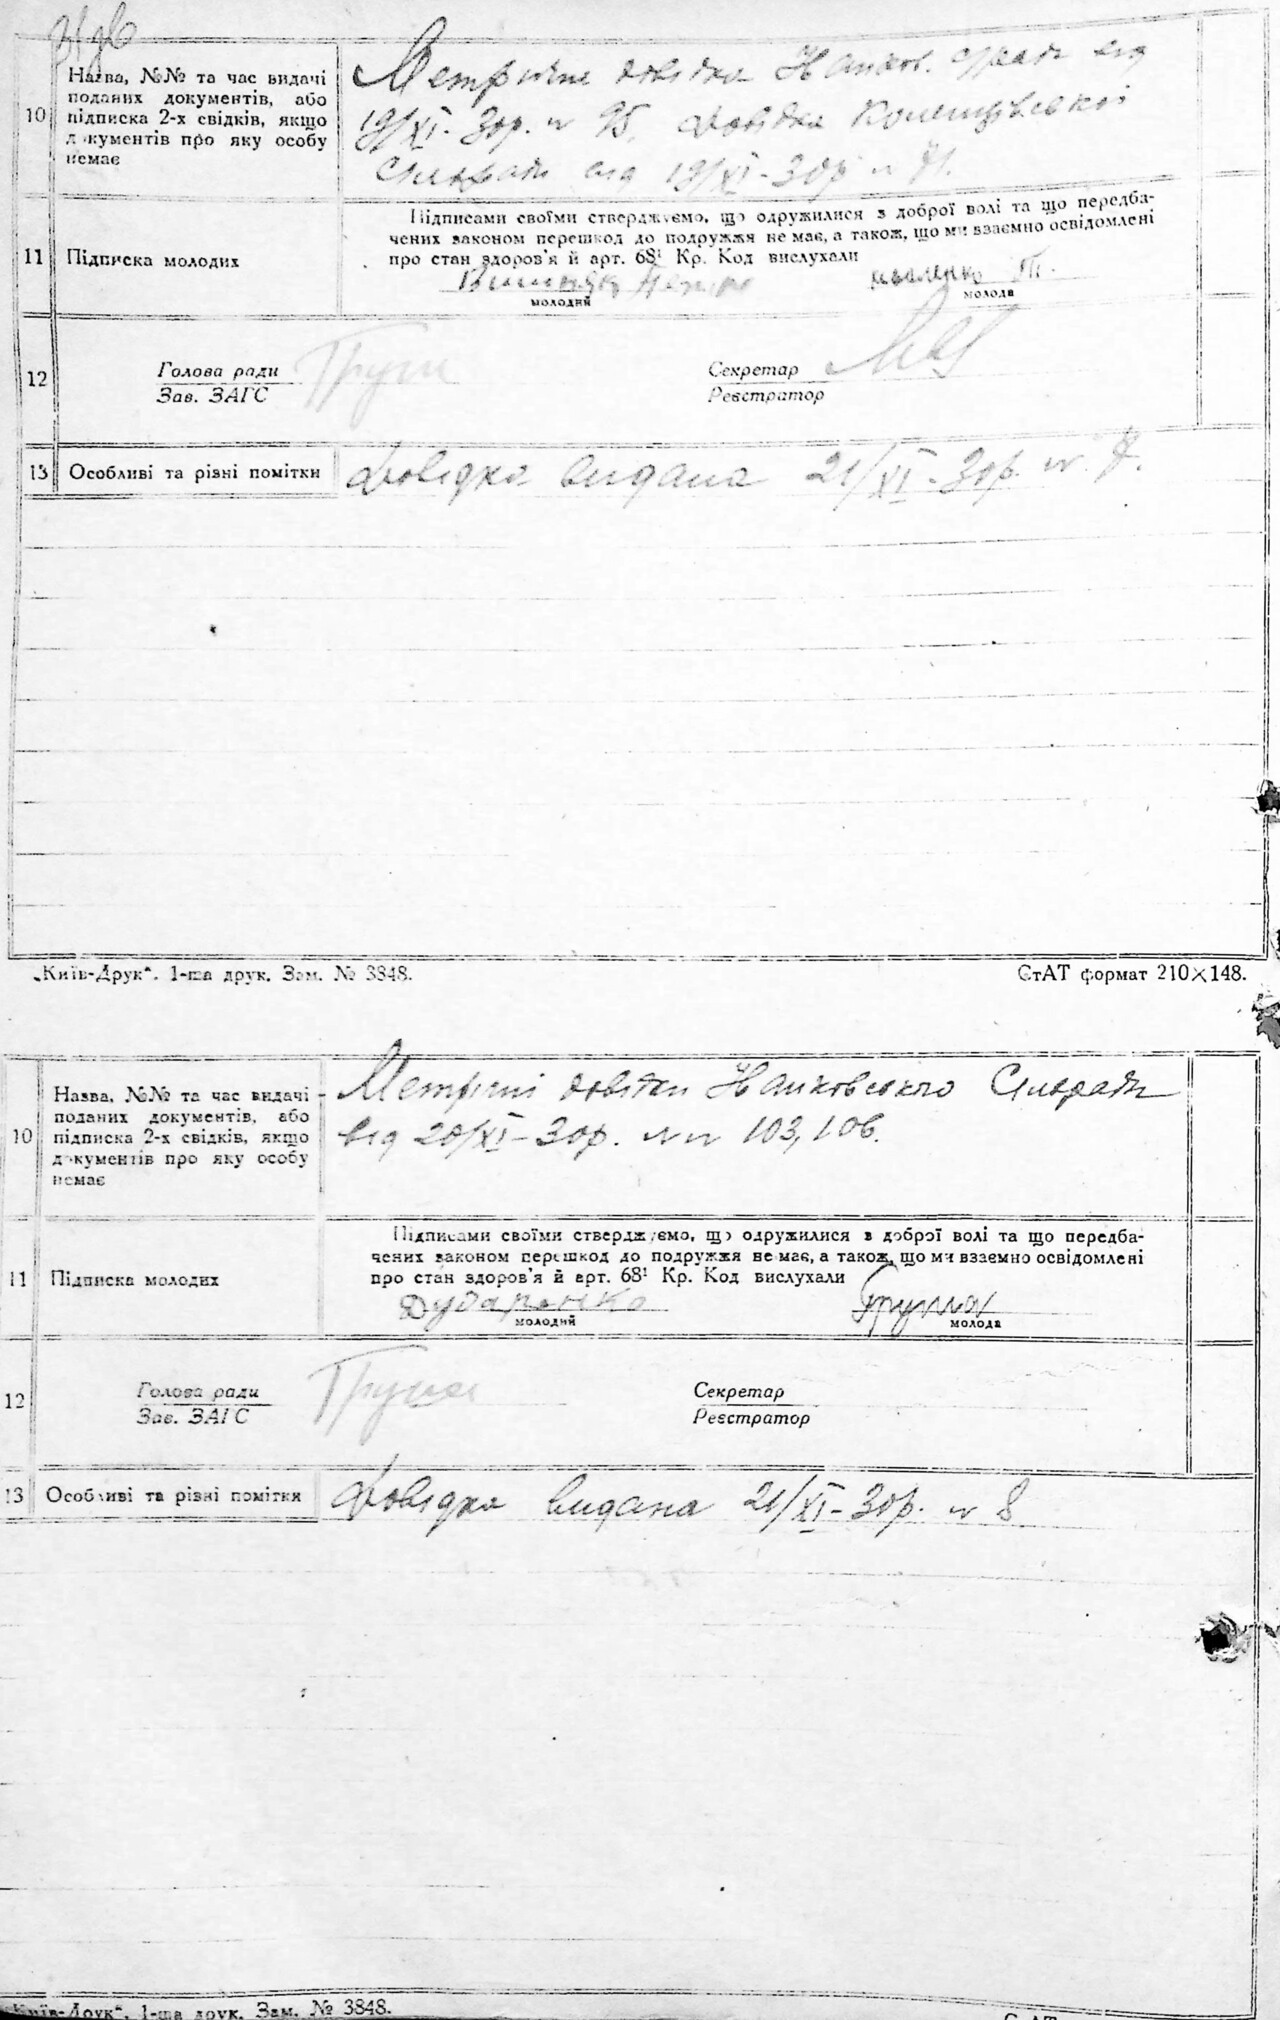 31 зв
10
Назва, №№ та час видачі
поданих документів, або
підписка 2-х свідків, якщо
документів про яку особу
немає
Метричне довідка Нацков. сради від
19/XI-30р. № 95, довідка
Сільради від 19/XI-30р № 71.
11
Підписка молодих
Підписами своїми стверджуємо, що одружилися з доброї волі та що передба-
чених законом перешкод до подружжя не має, а також, що ми взаємно освідомлені
про стан здоров'я й арт. 68¹ Кр. Код вислухали
молодий
молода
12
Голова ради
Зав. ЗАГС
Секретар
Реєстратор
13
Особливі та різні помітки
Довідка видана 21/XI-30р. № 7.
„Київ-Друк“. 1-ша друк. Зам. № 3848.
СтАТ формат 210×148.
10
Назва, №№ та час видачі
поданих документів, або
підписка 2-х свідків, якщо
документів про яку особу
немає
Метричні довідки Сільради
від 20/XI-30р. №№ 103, 106.
11
Підписка молодих
Підписами своїми стверджуємо, що одружилися з доброї волі та що передба-
чених законом перешкод до подружжя не має, а також, що ми взаємно освідомлені
про стан здоров'я й арт. 68¹ Кр. Код вислухали
Дударенко
молодий
молода
12
Голова ради
Зав. ЗАГС
Секретар
Реєстратор
13
Особливі та різні помітки
Довідка видана 21/XI-30р. № 8
„Київ-Друк“. 1-ша друк. Зам. № 3848.